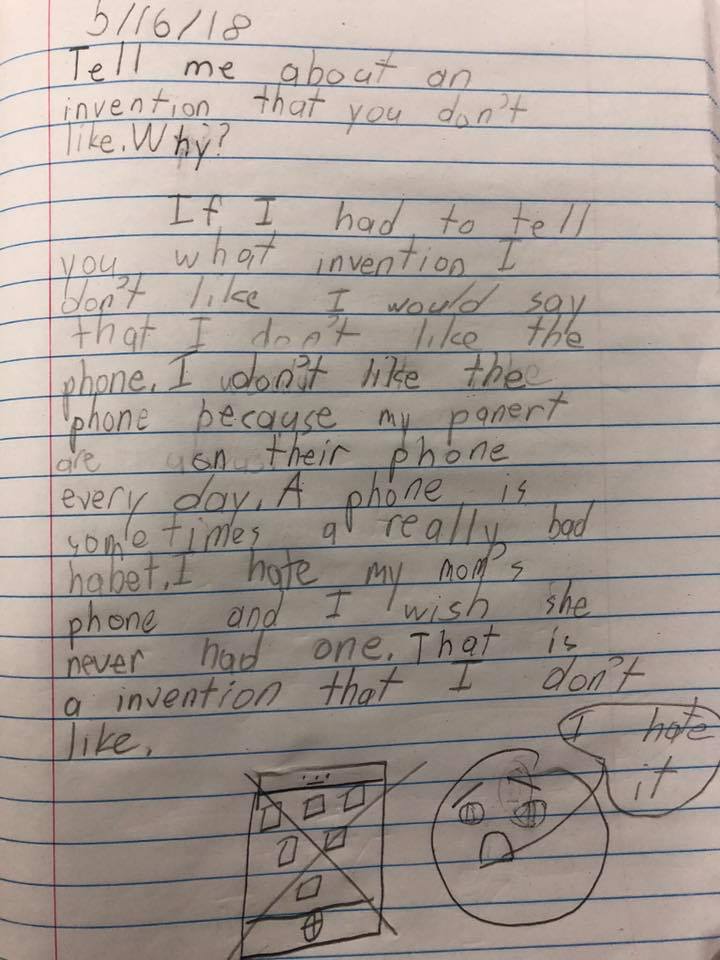 5/16/18
Tell me about an
invention that you don't
like. Why?
If I had to tell
you what invention I
don't like I would say
that I don't like the
phone. I don't like the
phone because my panert
are on their phone
every day. A phone is
sometimes a really bad
habet. I hate my mom's
phone and I wish she
never had one. That is
a invention that I don't
like.
I hate
it